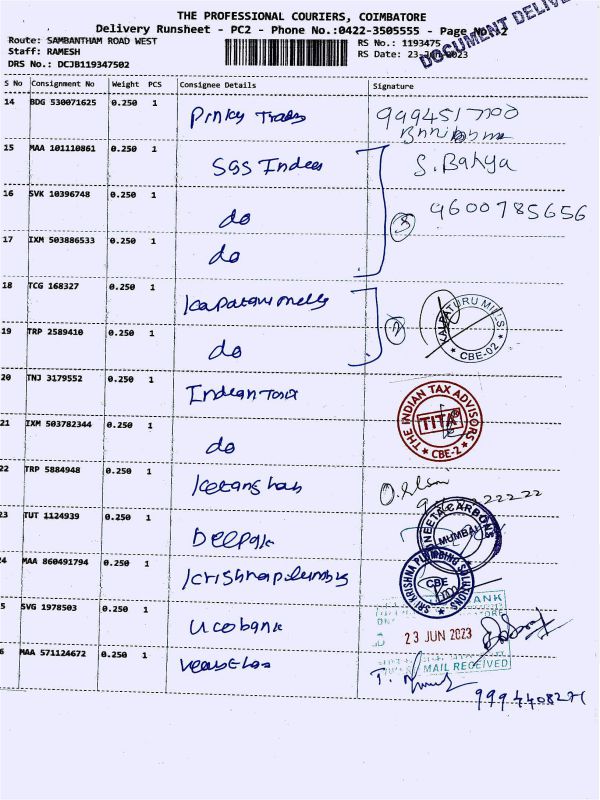 THE PROFESSIONAL COURIERS, COIMBATORE
Delivery Runsheet - PC2 - Phone No.:0422-3505555 - Page No. 2
Route: SAMBANTHAM ROAD WEST
RS No.: 1193475
Staff: RAMESH
RS Date: 23-Jun-2023
DRS No.: DCJB119347502
DOCUMENT DELIVE
S No Consignment No Weight PCS Consignee Details Signature
14 BDG 530071625 0.250 1 Pinky Trades 9994517700
15 MAA 101110861 0.250 1 SGS Indees S. Bahya
16 SVK 10396748 0.250 1 do 3 9600785656
17 IXM 503886533 0.250 1 do
18 TCG 168327 0.250 1 KALPATURU MILLS * CBE-02 *
19 TRP 2589410 0.250 1 do 2
20 TNJ 3179552 0.250 1 Indian Tax THE INDIAN TAX ADVISORS TITA * CBE-2 *
21 IXM 503782344 0.250 1 do
22 TRP 5884948 0.250 1
23 TUT 1124939 0.250 1 Deepak CARBONS MUMBAI
24 MAA 860491794 0.250 1 Krishna plumbing SRI KRISHNA PLUMBING SOLUTIONS CBE
5 SVG 1978503 0.250 1 uco bank BANK
23 JUN 2023
6 MAA 571124672 0.250 1 MAIL RECEIVED
9994408271